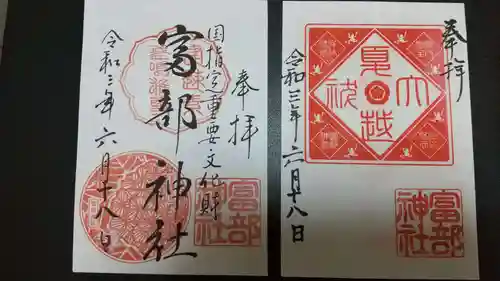 奉拝
国指定重要文化財
富部神社
令和三年六月十八日
富部
神社
奉拝
夏越
大祓
令和三年六月十八日
富部
神社